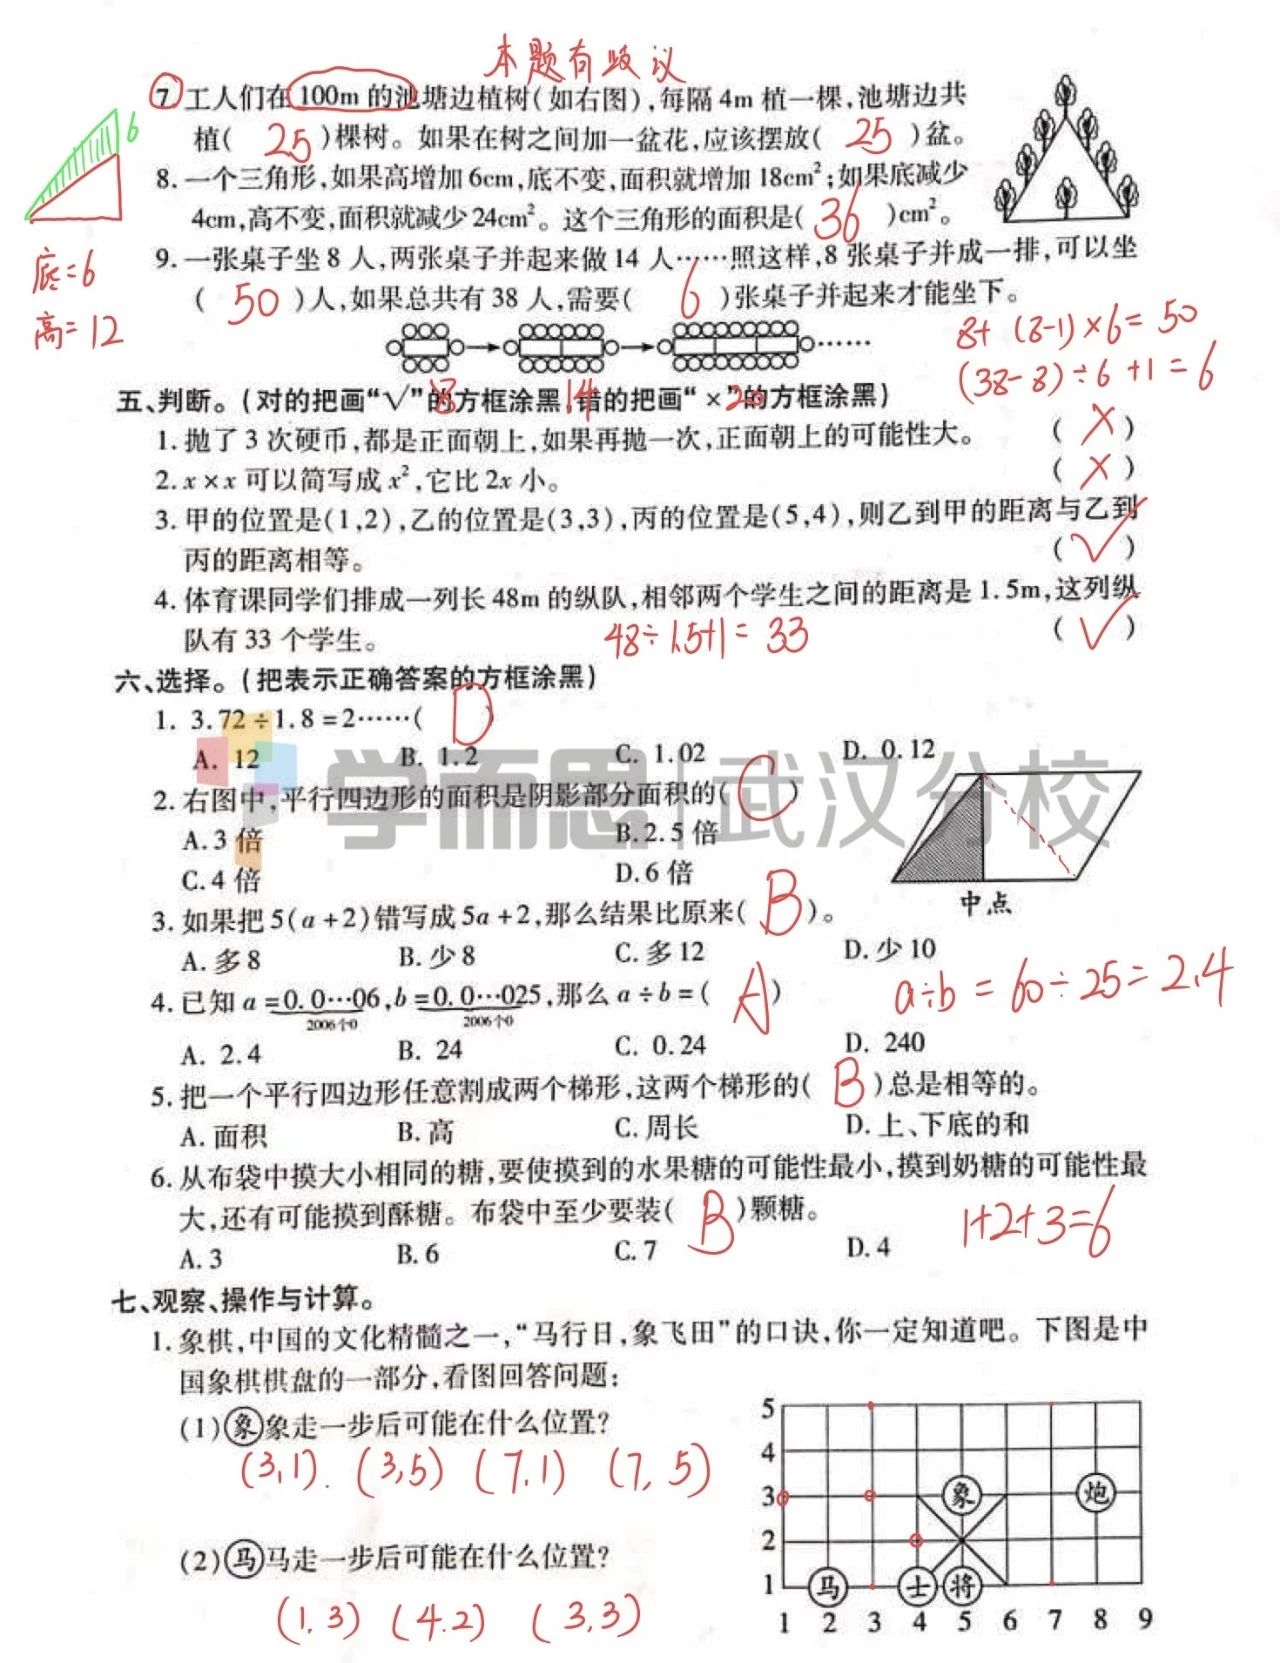 本题有歧议
7 工人们在100m的池塘边植树(如右图),每隔4m植一棵,池塘边共
植( 25 )棵树。如果在树之间加一盆花,应该摆放( 25 )盆。
6
8. 一个三角形,如果高增加6cm,底不变,面积就增加18cm²;如果底减少
4cm,高不变,面积就减少24cm²。这个三角形的面积是( 36 )cm²。
底=6
高=12
9. 一张桌子坐8人,两张桌子并起来做14人……照这样,8张桌子并成一排,可以坐
( 50 )人,如果总共有38人,需要( 6 )张桌子并起来才能坐下。
……
8+(8-1)×6=50
(38-8)÷6+1=6
8 14 20
五、判断。(对的把画“√”的方框涂黑,错的把画“×”的方框涂黑)
1. 抛了3次硬币,都是正面朝上,如果再抛一次,正面朝上的可能性大。 ( × )
2. x×x可以简写成x²,它比2x小。 ( × )
3. 甲的位置是(1,2),乙的位置是(3,3),丙的位置是(5,4),则乙到甲的距离与乙到
丙的距离相等。 ( √ )
4. 体育课同学们排成一列长48m的纵队,相邻两个学生之间的距离是1.5m,这列纵
队有33个学生。 48÷1.5+1=33 ( √ )
六、选择。(把表示正确答案的方框涂黑)
1. 3.72÷1.8=2……( D )
A. 12 B. 1.2 C. 1.02 D. 0.12
学而思|武汉分校
2. 右图中,平行四边形的面积是阴影部分面积的( C )
A. 3倍 B. 2.5倍
C. 4倍 D. 6倍
中点
3. 如果把5(a+2)错写成5a+2,那么结果比原来( B )。
A. 多8 B. 少8 C. 多12 D. 少10
4. 已知a=0.0…06,b=0.0…025,那么a÷b=( A )
2006个0 2006个0
a÷b=60÷25=2.4
A. 2.4 B. 24 C. 0.24 D. 240
5. 把一个平行四边形任意割成两个梯形,这两个梯形的( B )总是相等的。
A. 面积 B. 高 C. 周长 D. 上、下底的和
6. 从布袋中摸大小相同的糖,要使摸到的水果糖的可能性最小,摸到奶糖的可能性最
大,还有可能摸到酥糖。布袋中至少要装( B )颗糖。 1+2+3=6
A. 3 B. 6 C. 7 D. 4
七、观察、操作与计算。
1. 象棋,中国的文化精髓之一,“马行日,象飞田”的口诀,你一定知道吧。下图是中
国象棋棋盘的一部分,看图回答问题:
(1)象象走一步后可能在什么位置?
(3,1). (3,5) (7,1) (7,5)
(2)马马走一步后可能在什么位置?
(1,3) (4.2) (3,3)
5
4
3 象 炮
2
1 马 士 将
1 2 3 4 5 6 7 8 9